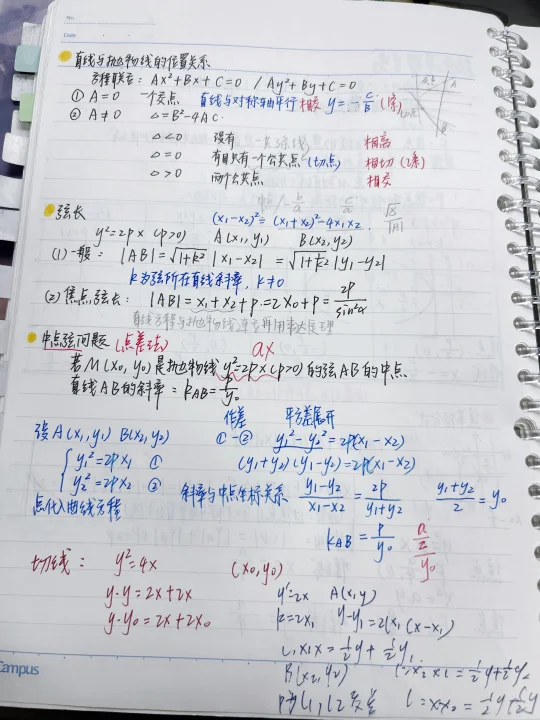 No.
Date
直线与抛物线的位置关系
方程联立: Ax²+Bx+C=0 / Ay²+By+C=0
① A=0 一个交点 直线与对称轴平行 相交 y=-C/B (1条)
② A≠0 Δ=B²-4AC
Δ<0 没有 相离
Δ=0 有且只有一个公共点 (切点) 相切 (2条)
Δ>0 两个公共点 相交
弦长 (x₁-x₂)²=(x₁+x₂)²-4x₁x₂ √Δ/|A|
y²=2px (p>0) A(x₁,y₁) B(x₂,y₂)
(1) 一般: |AB|=√(1+k²) |x₁-x₂| =√(1+k²) |y₁-y₂|
k为弦所在直线斜率, k≠0
(2) 焦点弦长: |AB|=x₁+x₂+p=2x₀+p=2p/sin²α
直线方程与抛物线联立再用韦达定理
中点弦问题 (点差法) ax
若M(x₀,y₀)是抛物线y²=2px(p>0)的弦AB的中点
直线AB的斜率: kAB=p/y₀
作差 平方差展开
设A(x₁,y₁) B(x₂,y₂) ①-② y₁²-y₂²=2p(x₁-x₂)
y₁²=2px₁ ① (y₁+y₂)(y₁-y₂)=2p(x₁-x₂)
y₂²=2px₂ ② 斜率与中点坐标关系 (y₁-y₂)/(x₁-x₂)=2p/(y₁+y₂) (y₁+y₂)/2=y₀
点代入曲线方程
kAB=p/y₀ (a/2)/y₀
切线: y²=4x (x₀,y₀)
y·y=2x+2x y'=2x A(x,y)
y·y₀=2x+2x₀ k=2x₁ y-y₁=2x₁(x-x₁)
l₁x₁x=½y+½y₁
B(x₂,y₂) l₂:x₂x=½y+½y₂
P为l₁,l₂交点
Campus